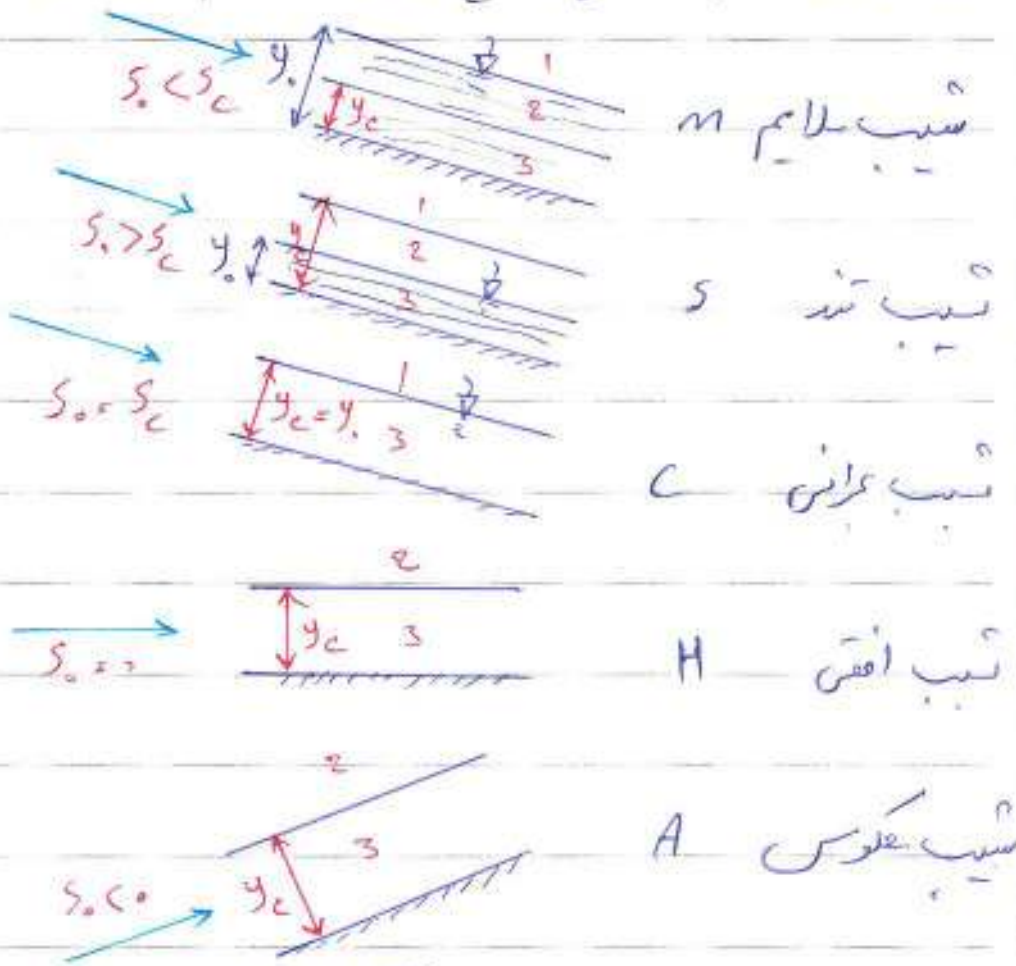 S₀ < S_c y₀ y_c 1 2 3 شیب ملایم M
S₀ > S_c y₀ y_c 1 2 3 شیب تند S
S₀ = S_c y_c = y₀ 1 3 شیب بحرانی C
S₀ = 0 y_c 2 3 شیب افقی H
S₀ < 0 y_c 2 3 شیب معکوس A